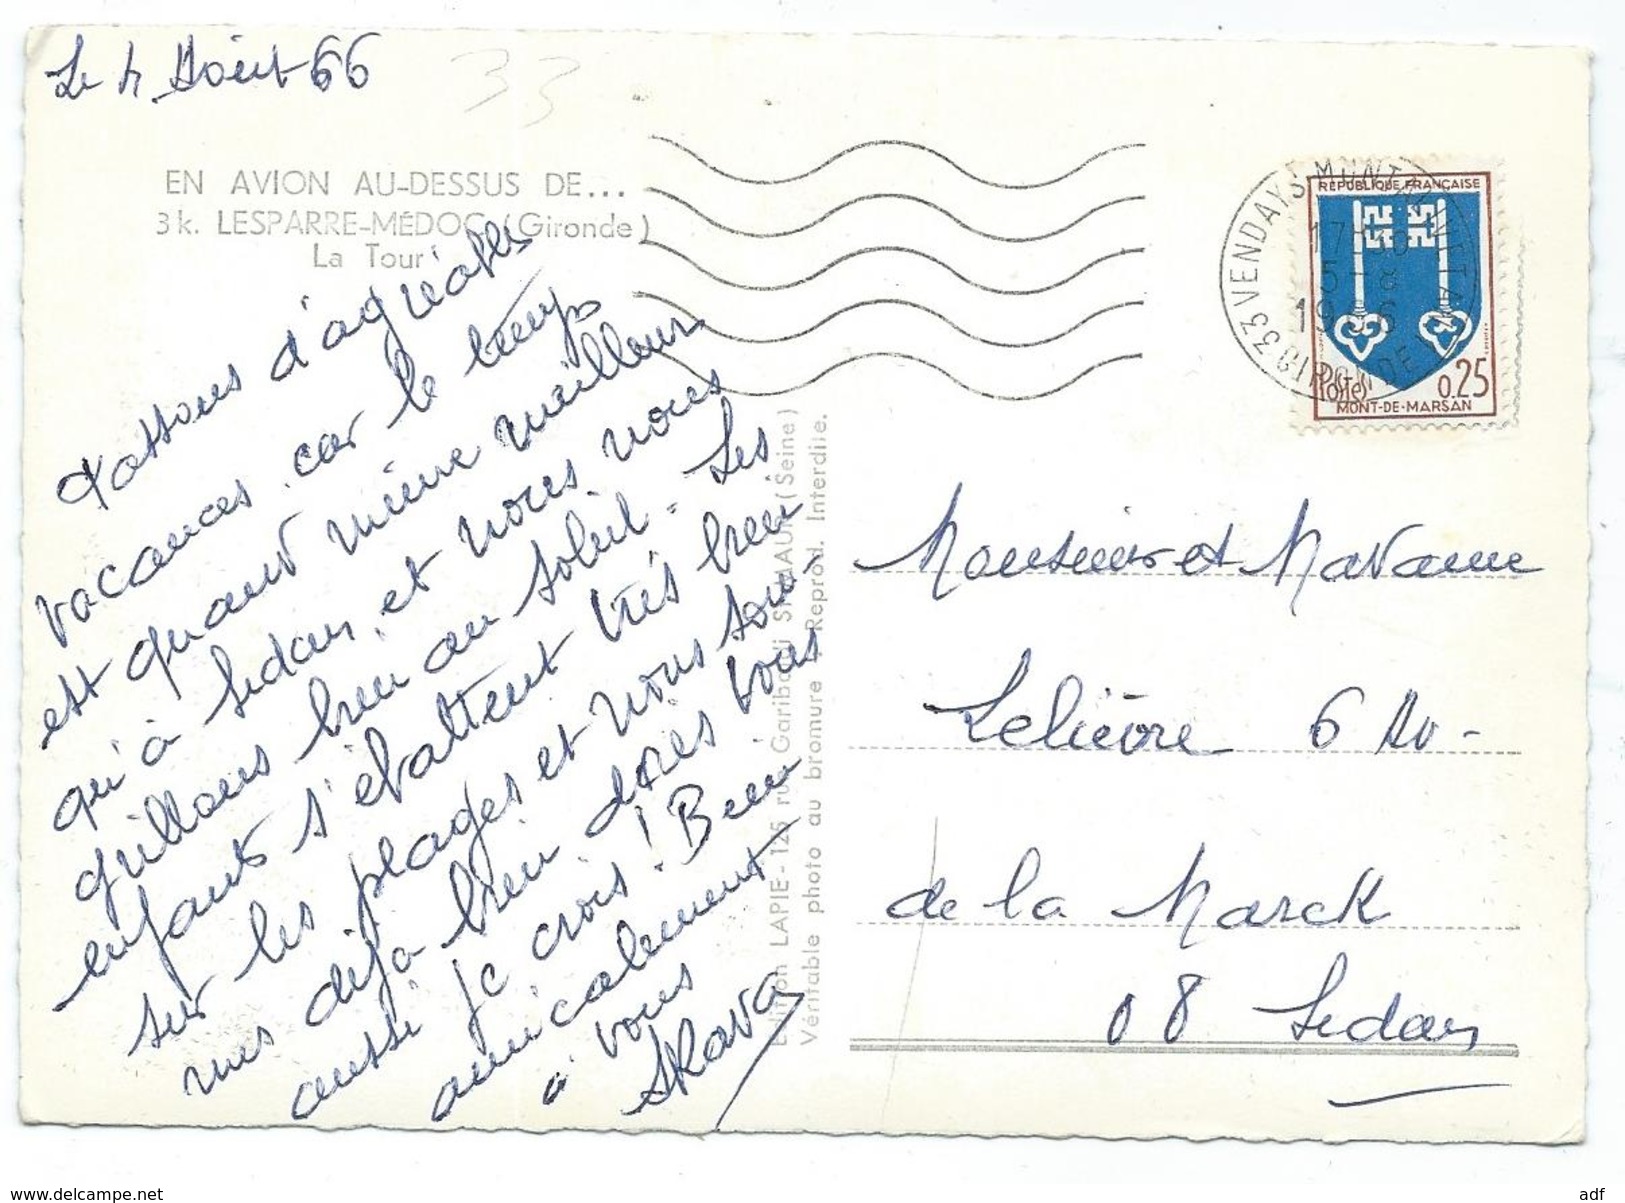 Le 4 Août 66
33
EN AVION AU-DESSUS DE...
3k. LESPARRE-MÉDOC (Gironde)
La Tour
Passons d'agréables
vacances car le temps
est quand même meilleur
qu'à Sedan, et nous nous
grillons bien au soleil - Les
enfants s'ébattent très bien
sur les plages et nous som-
mes déjà bien dorés vous
aussi je crois ! Bien
amicalement
à vous
Edition LAPIE - 125 rue Garibaldi ST-MAUR (Seine)
Véritable photo au bromure Reprod. Interdite.
33 VENDAYS-MONTALIVET
GIRONDE
17H
5-8
1966
RÉPUBLIQUE FRANÇAISE
Postes
0,25
MONT-DE-MARSAN
Monsieur et Madame
Lelièvre 6 Av -
de la Marck
08 Sedan
www.delcampe.net
adf